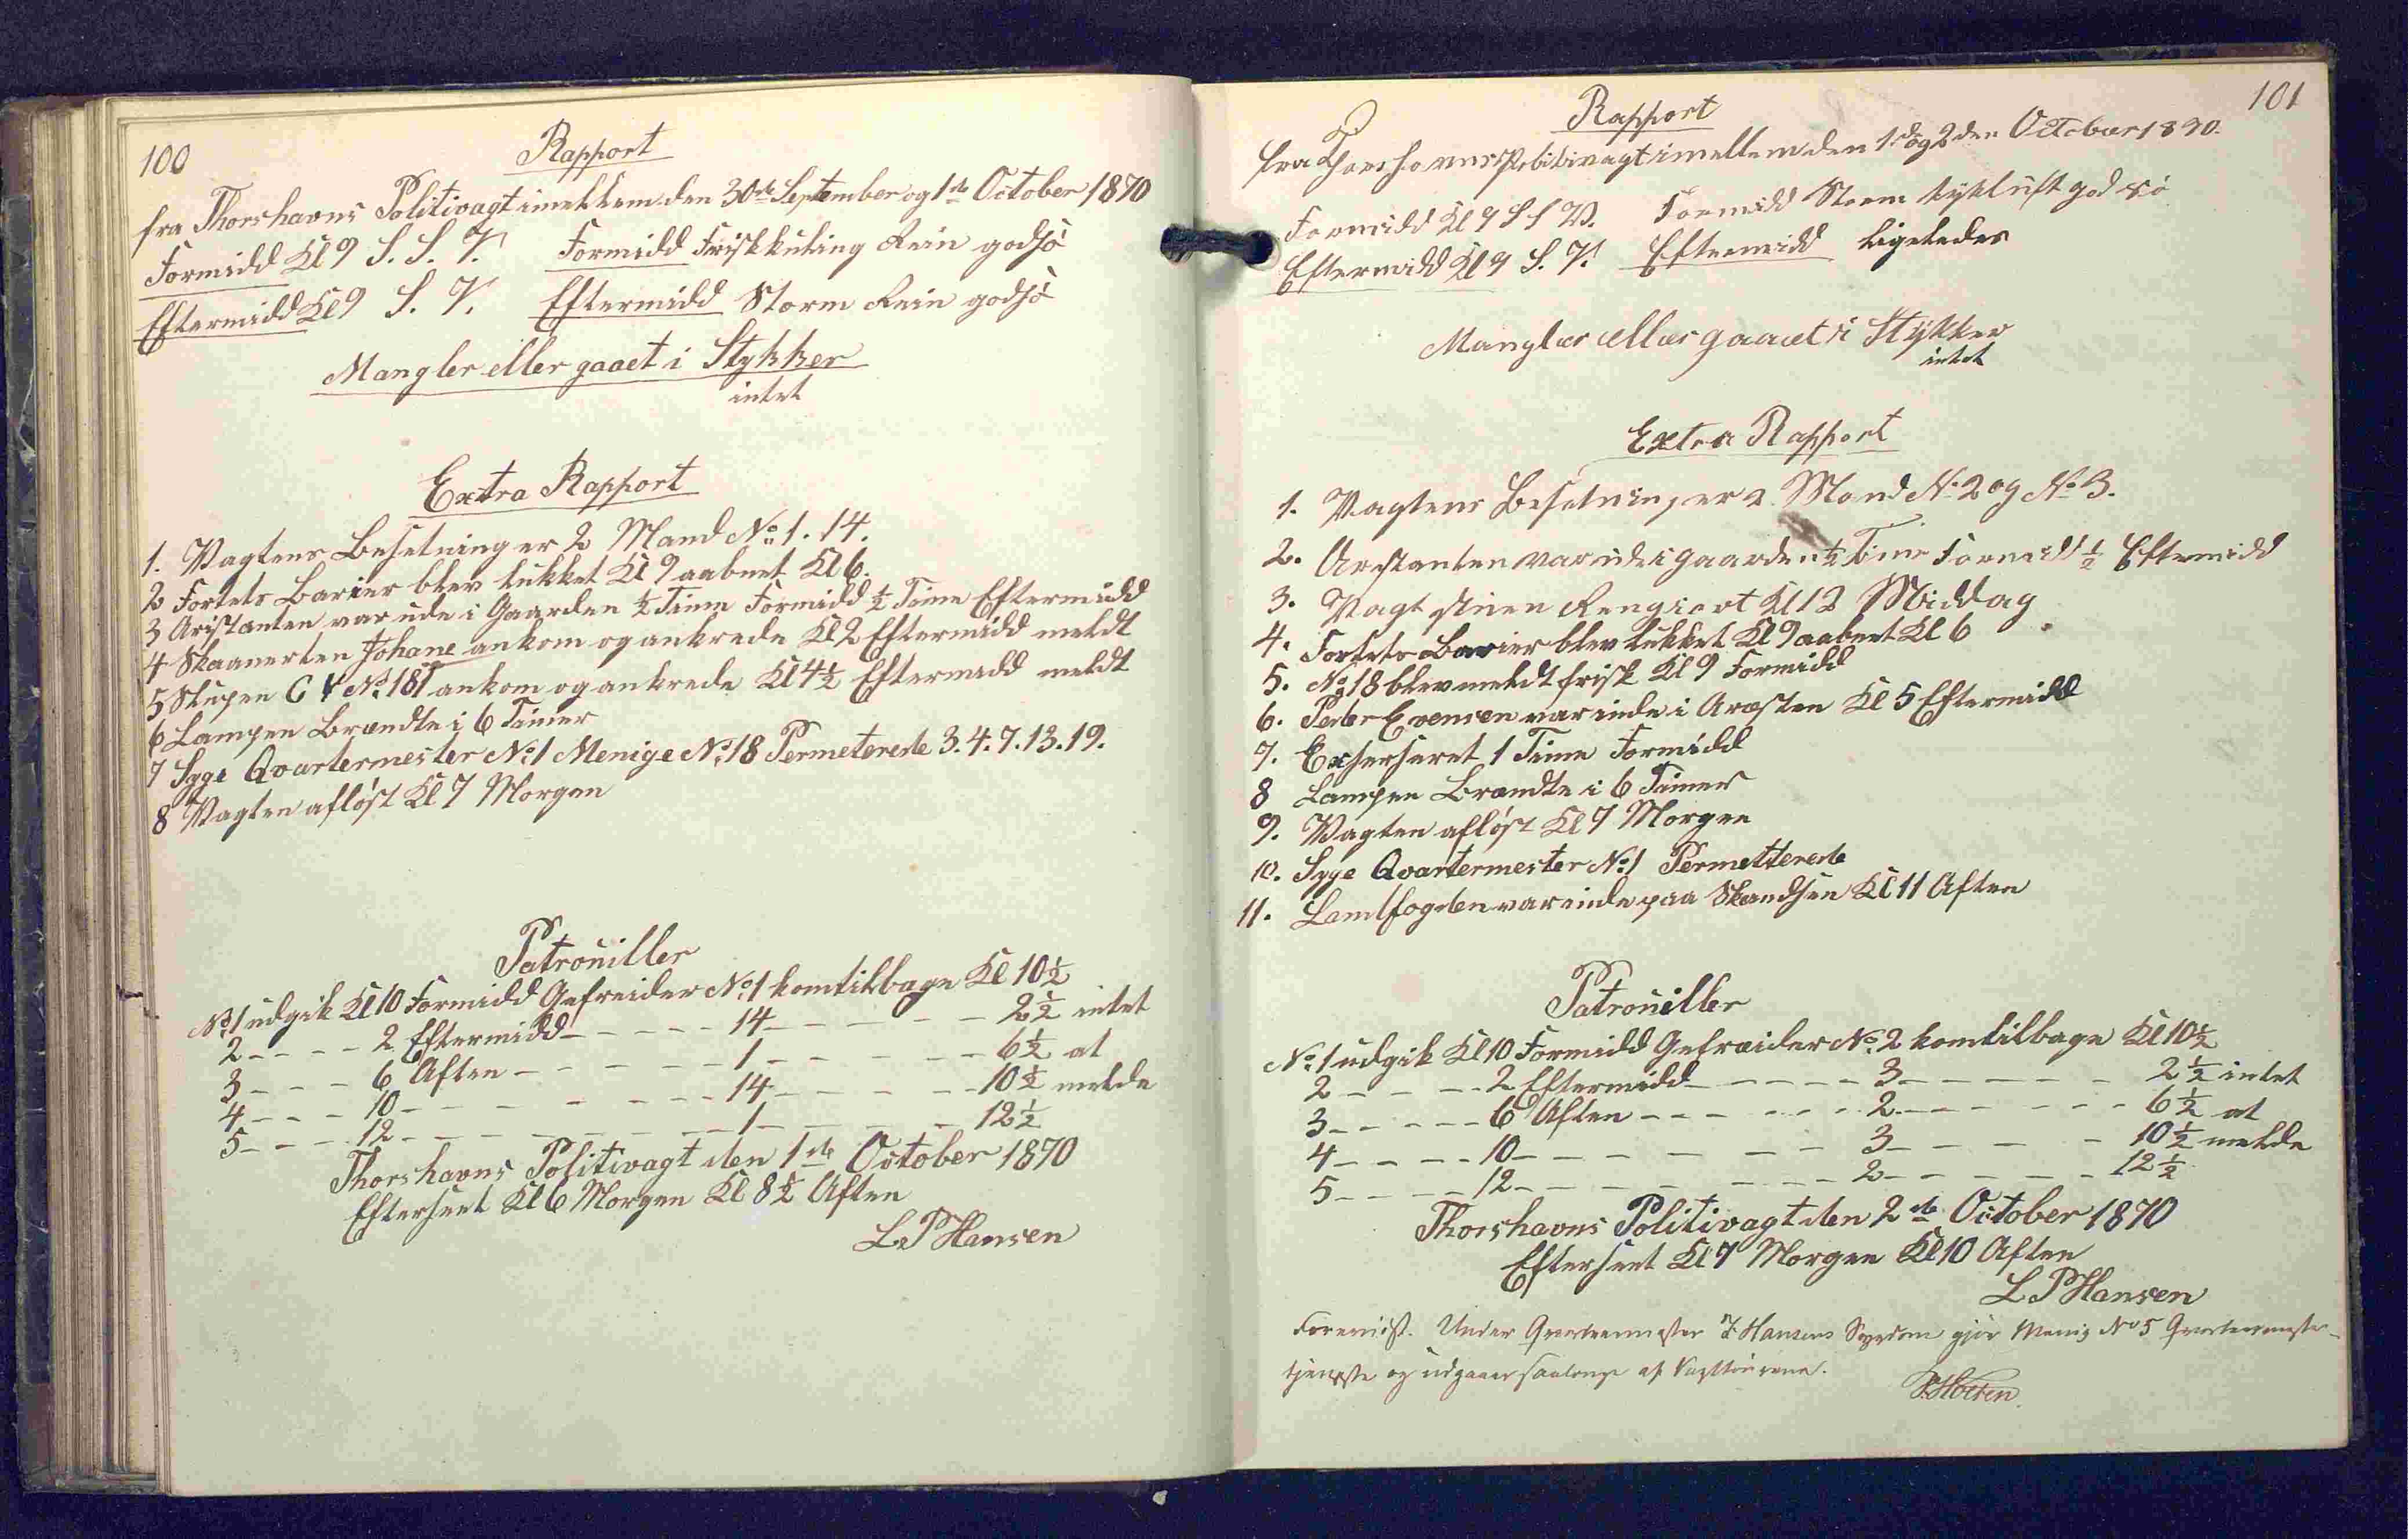 100
Rapport
fra Thorshavns Politivagt imellem den 30te September og 1ste October 1870
Formidd Kl 9 S. S. V. Formidd Frisk kuling Rein godsö
Eftermidd Kl 9 S. V. Eftermidd Storm Rein godsö
Mangler eller gaaet i Stykker
intet
Extra Rapport
1. Vagtens Besetning er 2 Mand No 1. 14.
2 Fortets Barier blev lukket Kl 9 aabnet Kl 6.
3 Aristanten var ude i Gaarden ½ Time Formidd ½ Time Eftermidd
4 Skaanerten Johane ankom og ankrede Kl 2 Eftermidd meldt
5 Slupen No 181 ankom og ankrede Kl 4½ Eftermidd meldt
6 Lampen Brændte i 6 Timer
7 Syge Qvartermester No 1 Menige No 18 Permeterede 3. 4. 7. 13. 19.
8 Vagten aflöst Kl 7 Morgen
Patrouiller
No 1 udgik Kl 10 Formidd Gefreider No 1 kom tilbage Kl 10½
2 - - - - 2 Eftermidd - - - - - 14 - - - - - 2½ intet
3 - - - 6 Aften - - - - - - 1 - - - - - 6½ at
4 - - - 10 - - - - - - - 14 - - - - - 10½ melde
5 - - - 12 - - - - - - - - 1 - - - - - 12½
Thorshavns Politivagt den 1ste October 1870
Efterseet Kl 6 Morgen Kl 8½ Aften
L. P Hansen
101
Rapport
fra Thorshavns Politivagt imellem den 1ste og 2den October 1870.
Formidd Kl 9 S S V. Formidd Storm tykluft god sö
Eftermidd Kl 9 S. V. Eftermidd ligeledes
Mangler eller gaaet i Stykker
intet
Extra Rapport
1. Vagtens Besetning er 2 Mand No 2 og No 3.
2. Arestanten var ude i gaarden ½ Time Formidd ½ Eftermidd
3. Vagt stuen Rengiort Kl 12 Middag
4. Fortets Barier blev lukket Kl 9 aabnet Kl 6
5. No 18 blev meldt frisk Kl 9 Formidd
6. Peder Evensen var inde i Aresten Kl 5 Eftermidd
7. Exserseret 1 Time Formidd
8 Lampen Brændte i 6 Timer
9. Vagten aflöst Kl 7 Morgen
10. Syge Qvartermester No 1 Permetterede
11. Landfogden var inde paa Skandsen Kl 11 Aften
Patrouiller
No 1 udgik Kl 10 Formidd Gefreider No 2 kom tilbage Kl 10½
2 - - - - 2 Eftermidd - - - - - 3 - - - - - 2½ intet
3 - - - - - 6 Aften - - - - - - 2 - - - - - 6½ at
4 - - - - 10 - - - - - - - 3 - - - - 10½ melde
5 - - - - 12 - - - - - - - 2 - - - - - 12½
Thorshavns Politivagt den 2den October 1870
Efterseet Kl 7 Morgen Kl 10 Aften
L P Hansen
Foreviist. Under Qvartermester Hansens Sygdom gjør Menig No 5 Qvartermester-
tjeneste og udgaaer saalænge af Vagttourene.